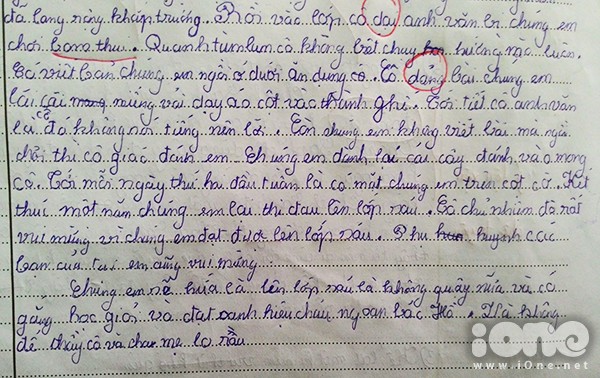 đã lang này khắp trường. Rồi vào lớp cô day anh văn bị chúng em
chơi bom thư. Quanh tùm lum cô không biết chuy hường nào luôn.
Cô viết bài chúng em ngồi ở dưới ăn dụng cơ. Cô dảng bài chúng em
lấy cái miếng vải dạy áo cột vào thành ghi. Tới tiết cô anh văn
là cô đá không nói tiếng nên lời. Còn chúng em không viết bài mà ngồi
chơi thì cô giác đánh em. Chúng em dành lại cái cây đánh vào mong
cô. Tới mỗi ngày thứ ha đầu tuần là có mặt chúng em trên cột cờ. Kết
thúi một năm chúng em lại thi đau lên lớp sáu. Cô chủ nhiệm đã rất
vui mừng vì chúng em đạt được lên lớp sáu. Phu huynh các
bạn của tụi em cũng vui mừng
Chúng em sẽ hứa là lên lớp sáu là không quậy nữa và cố
gắng học giỏi và đạt oanh hiệu cháu ngoan bác Hồ. Và không
để thầy cô và cha mẹ lo rầu
iOne
www.iOne.net